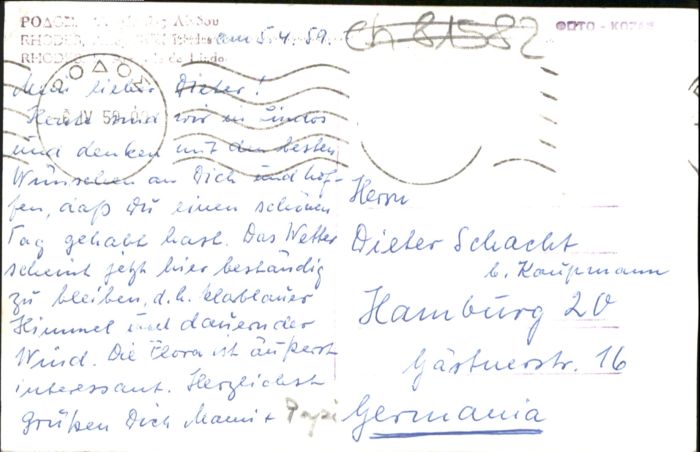 ΡΟΔΟΣ
RHODES
RHODES Lindos
am 5.4.59.
Ch 81582
ΦΩΤΟ - ΚΟΖΑΣ
ΡΟΔΟΣ
IV 59
Mein lieber Dieter!
Heute sind wir in Lindos
und denken mit den besten
Wünschen an Dich und hof-
fen, daß Du einen schönen
Tag gehabt hast. Das Wetter
scheint jetzt hier beständig
zu bleiben, d.h. klarblauer
Himmel und dauernder
Wind. Die Flora ist äußerst
interessant. Herzlichst
grüßen Dich Mami + Papi
Herrn
Dieter Schacht
b. Kaufmann
Hamburg 20
Gärtnerstr. 16
Germania